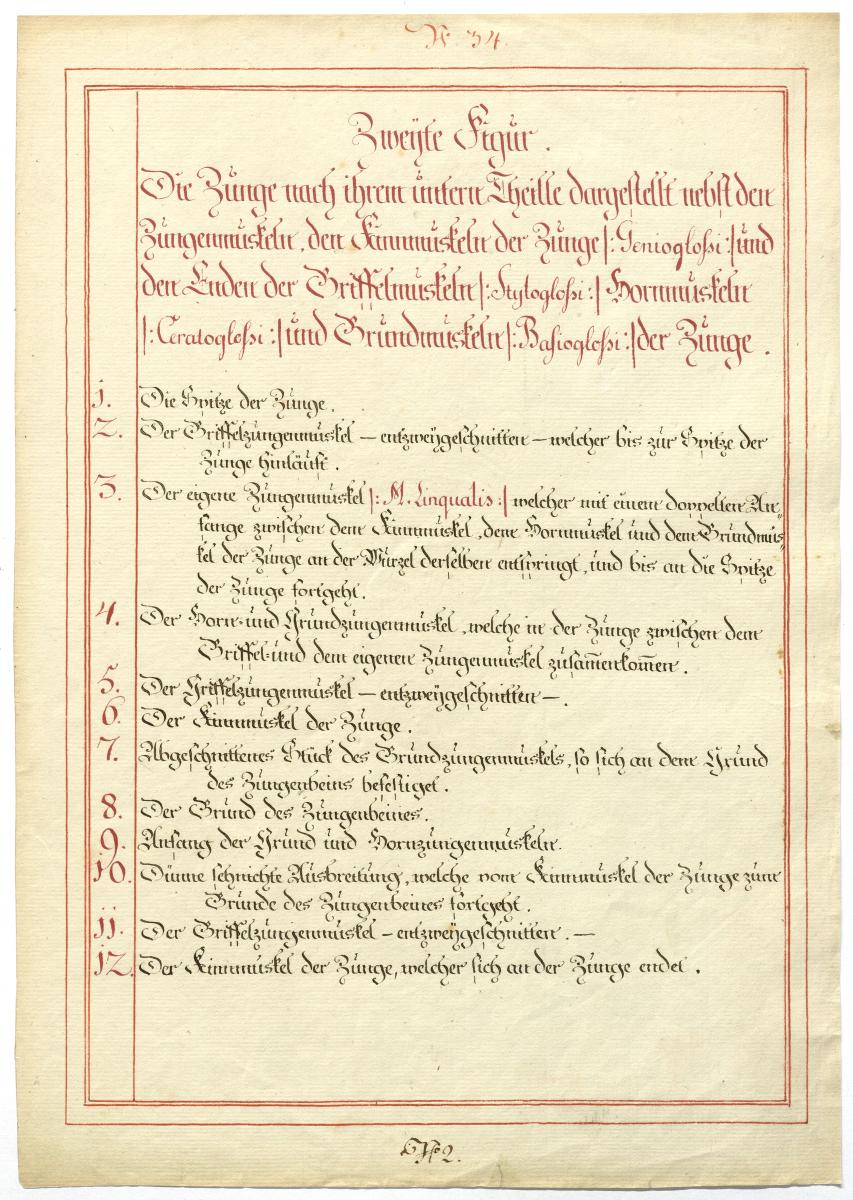 N. 34.
Zweÿte Figur.
Die Zunge nach ihrem untern Theille dargestellt nebst den
Zungenmuskeln, den Kinnmuskeln der Zunge |: Genioglossi :| und
den Enden der Griffelmuskeln |: Styloglossi :| Hornmuskeln
|: Ceratoglossi :| und Grundmuskeln |: Basioglossi :| der Zunge.
1. Die Spitze der Zunge.
2. Der Griffelzungenmuskel – entzweÿgeschnitten – welcher bis zur Spitze der
Zunge hinläuft.
3. Der eigene Zungenmuskel |: M. Lingualis :| welcher mit einem doppelten An„
fange zwischen dem Kinnmuskel, dem Hornmuskel und dem Grundmus„
kel der Zunge an der Wurzel derselben entspringt, und bis an die Spitze
der Zunge fortgeht.
4. Der Horn- und Grundzungenmuskel, welche in der Zunge zwischen dem
Griffel- und dem eigenen Zungenmuskel zusam̅enkom̅en.
5. Der Griffelzungenmuskel – entzweÿgeschnitten –.
6. Der Kinnmuskel der Zunge.
7. Abgeschnittenes Stück des Grundzungenmuskels, so sich an dem Grund
des Zungenbeins befestiget.
8. Der Grund des Zungenbeines.
9. Anfang der Grund und Hornzungenmuskeln.
10. Dünne sehnichte Ausbreitung, welche vom Kinnmuskel der Zunge zum
Grunde des Zungenbeines fortgeht.
11. Der Griffelzungenmuskel – entzweÿgeschnitten. –
12. Der Kinnmuskel der Zunge, welcher sich an der Zunge endet.
N° 2.